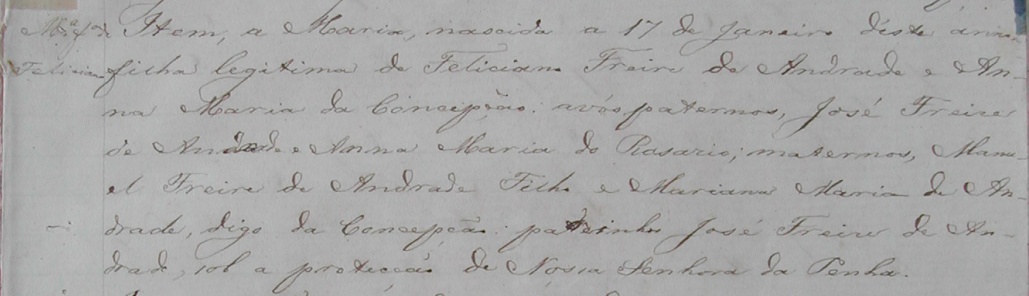 Mª fª de Item, a Maria, nascida a 17 de Janeiro d'este anno
Feliciano filha legitima de Feliciano Freire de Andrade e An-
na Maria da Concepção: avós paternos, José Freire
de Andrade e Anna Maria do Rosario; maternos, Manu-
el Freire de Andrade Filho e Marianna Maria de An-
drade, digo da Concepção: padrinho José Freire de An-
drade, sob a protecção de Nossa Senhora da Penha.